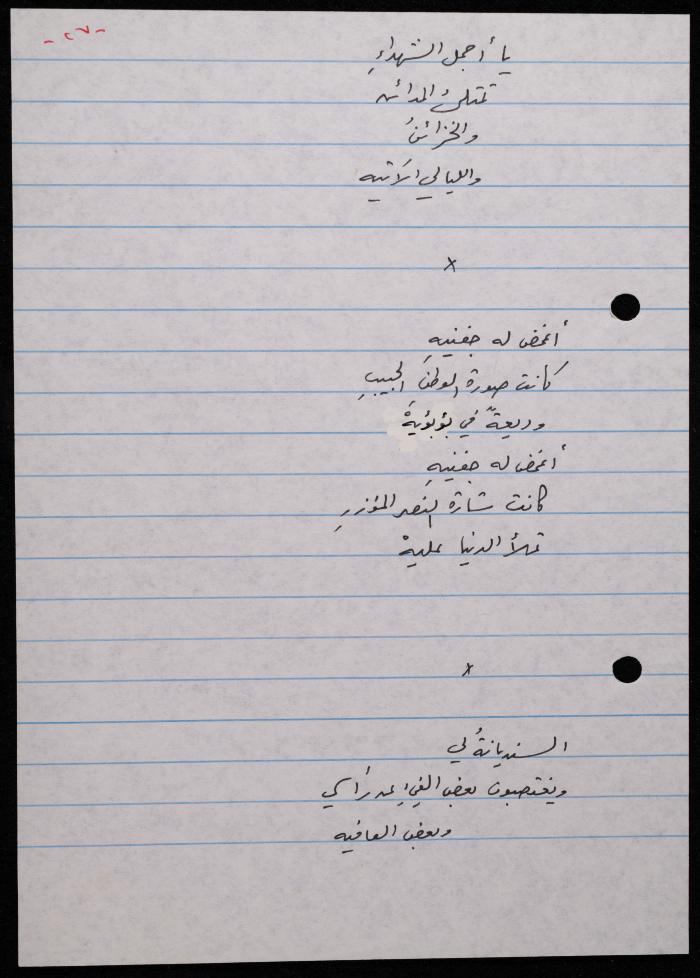 - ٢٧ -
يا أجمل الشهداءِ
تمتلئُ المدائن
والخزائنُ
والليالي الآتيه
x
أغمض له جفنيهِ
كانت صورة الوطنِ الحبيبِ
وديعةً في بؤبؤيهْ
أغمض له جفنيهِ
كانت شارة النصر المؤزرِ
تملأ الدنيا عليهْ
x
السنديانةُ لي
ويغتصبون بعض الفيء عن رأسي
وبعض العافيه